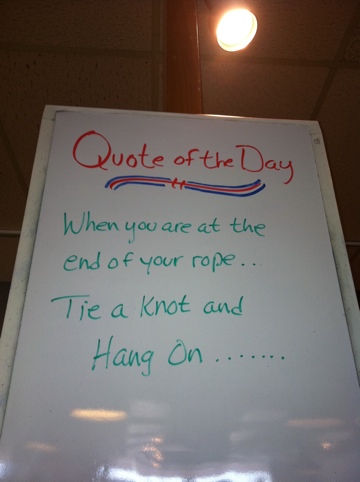 Quote of the Day
When you are at the
end of your rope...
Tie a Knot and
Hang On .......